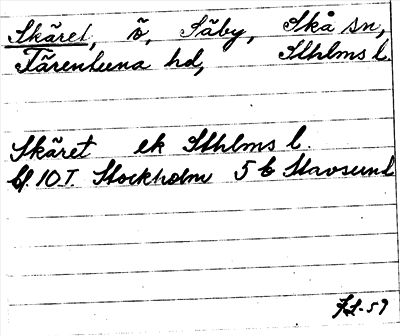 Skäret, ö, Säby, Skå sn,
Färentuna hd, Sthlms l.
Skäret ek Sthlms l.
Bl. 10 I. Stockholm 5 b Stavsund
-59